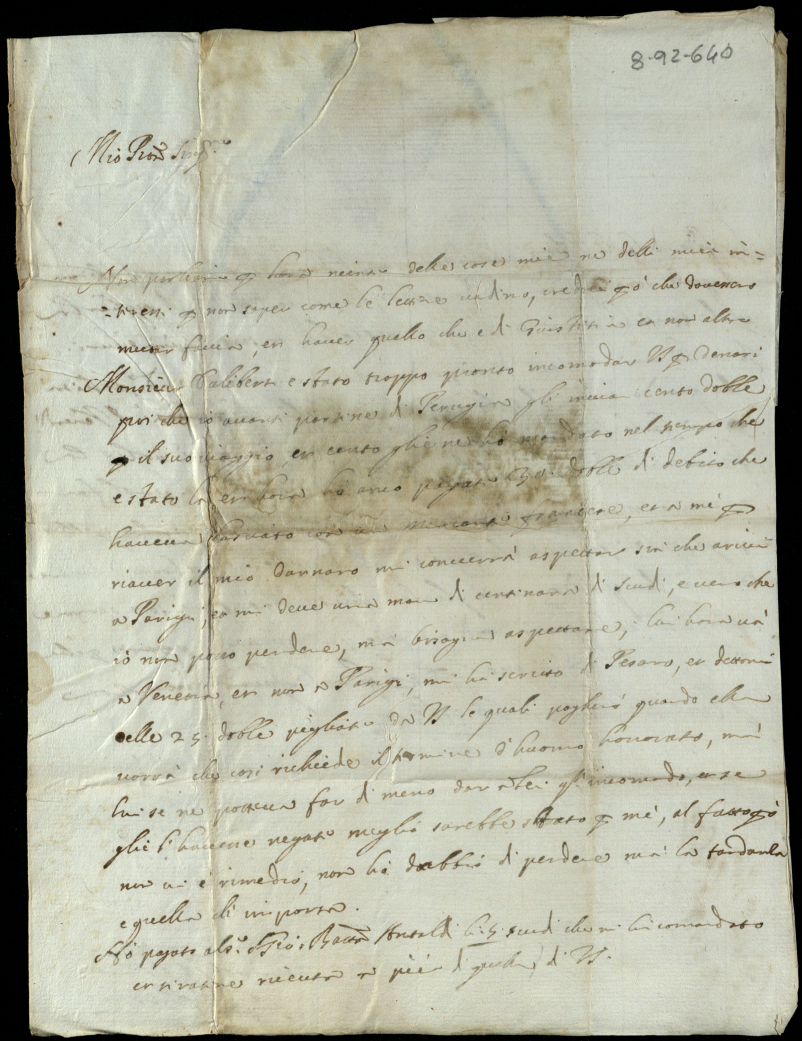 8-92-640
Mio Pron
Non p hora niente delle cose mie ne delli miei in=
=teressi p non saper come le lettere vadino, pò che doveran
faccia, et haver quello che è di Giustitia et non altro
Monsieur Saliberti e stato troppo pronto incomodar VS p denari
poi che io avanti partire di Perugia gli cento doble
p il suo viaggio, et cento gliene ho mandato nel tempo che
e stato la et hora ho anco pagato doble di debito che
haveva lasciato con un mercante, et a me p
riaver il mio dannaro mi converrà aspettar sin che arivi
a Parigi, et mi deve una man di centinara di scudi, e vero che
io non posso perdere, mà bisogna aspettare, lui hora và
a Venetia, et non a Parigi, mi hà scritto di Pesaro, et
delle 25 doble pigliate da VS le quali pagherò quando ella
vorrà che così richiede il termine d'huomo honorato, mà
lui se ne poteva far di meno dar a lei gl'incomodo, et se
glie l'havesse negate meglio sarebbe stato p me, al fatto pò
non vi è rimedio, non hò dubbio di perdere mà la tardanza
e quella di importa.
Hò pagato al Sr. Gio: Batta Antaldi li 5 scudi che mi hà comandato
et ritratone ricevuta a piè di questa di VS.